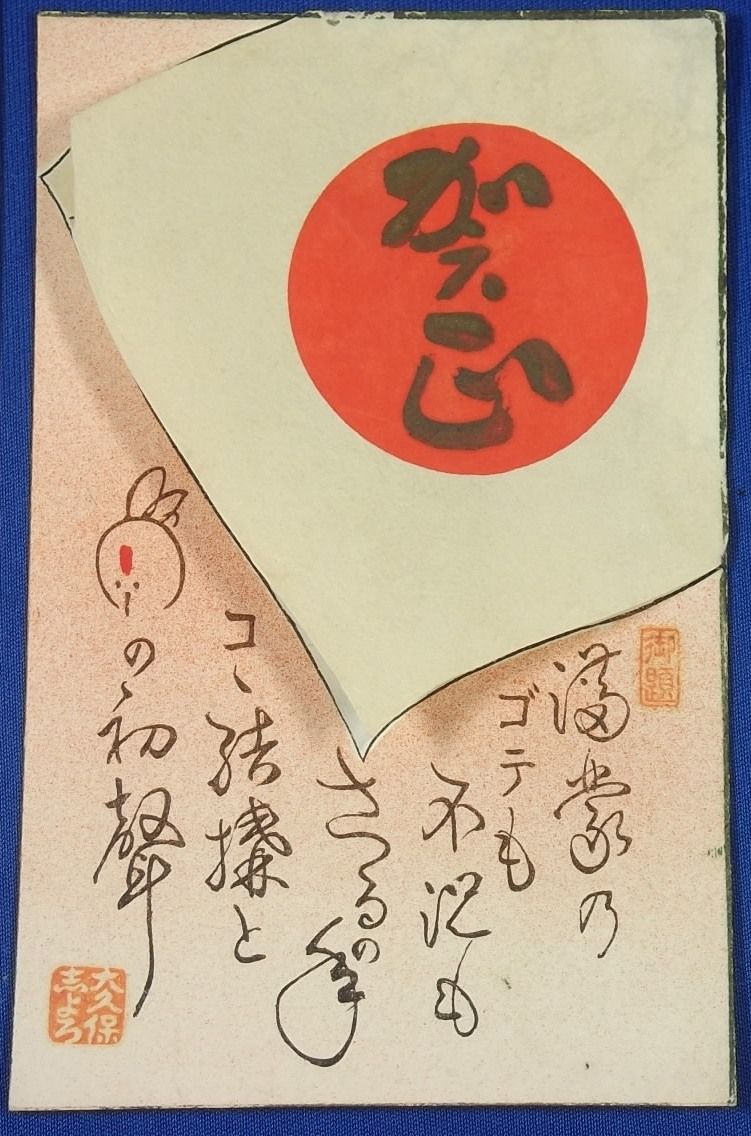 賀正
御題
満蒙乃
ゴテも
不況も
さるの年
コヽ結構と
のヽ初聲
大久保
志よろ